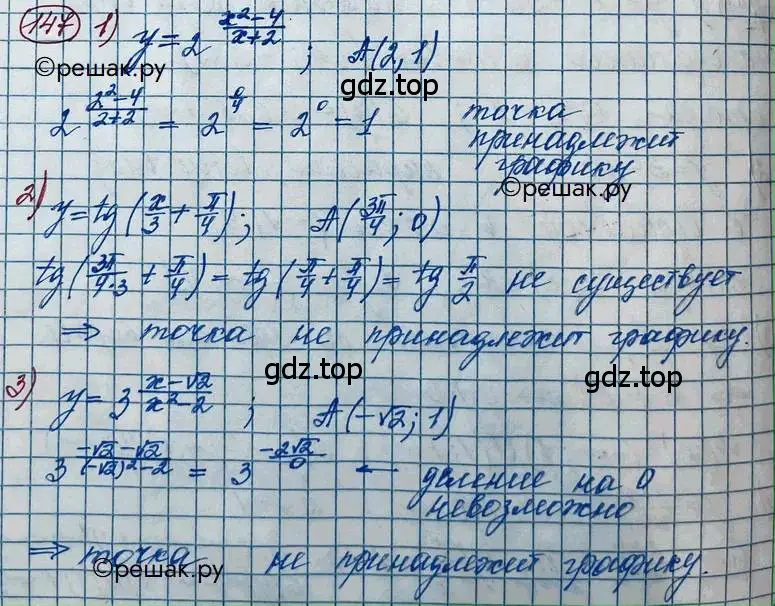 147 1) y = 2^((x²-4)/(x+2)) ; A(2, 1)
©решак.ру
gdz.top
2^((2²-4)/(2+2)) = 2^(0/4) = 2^0 = 1 точка
принадлежит
графику
©решак.ру
2) y = tg (x/3 + π/4); A(3π/4; 0)
tg(3π/(4·3) + π/4) = tg(π/4 + π/4) = tg π/2 не существует
⇒ точка не принадлежит графику.
gdz.top gdz.top
3) y = 3^((x-√2)/(x²-2)) ; A(-√2; 1)
3^((-√2-√2)/((-√2)²-2)) = 3^(-2√2/0) ← деление на 0
невозможно
⇒ точка не принадлежит графику.
©решак.ру
gdz.top